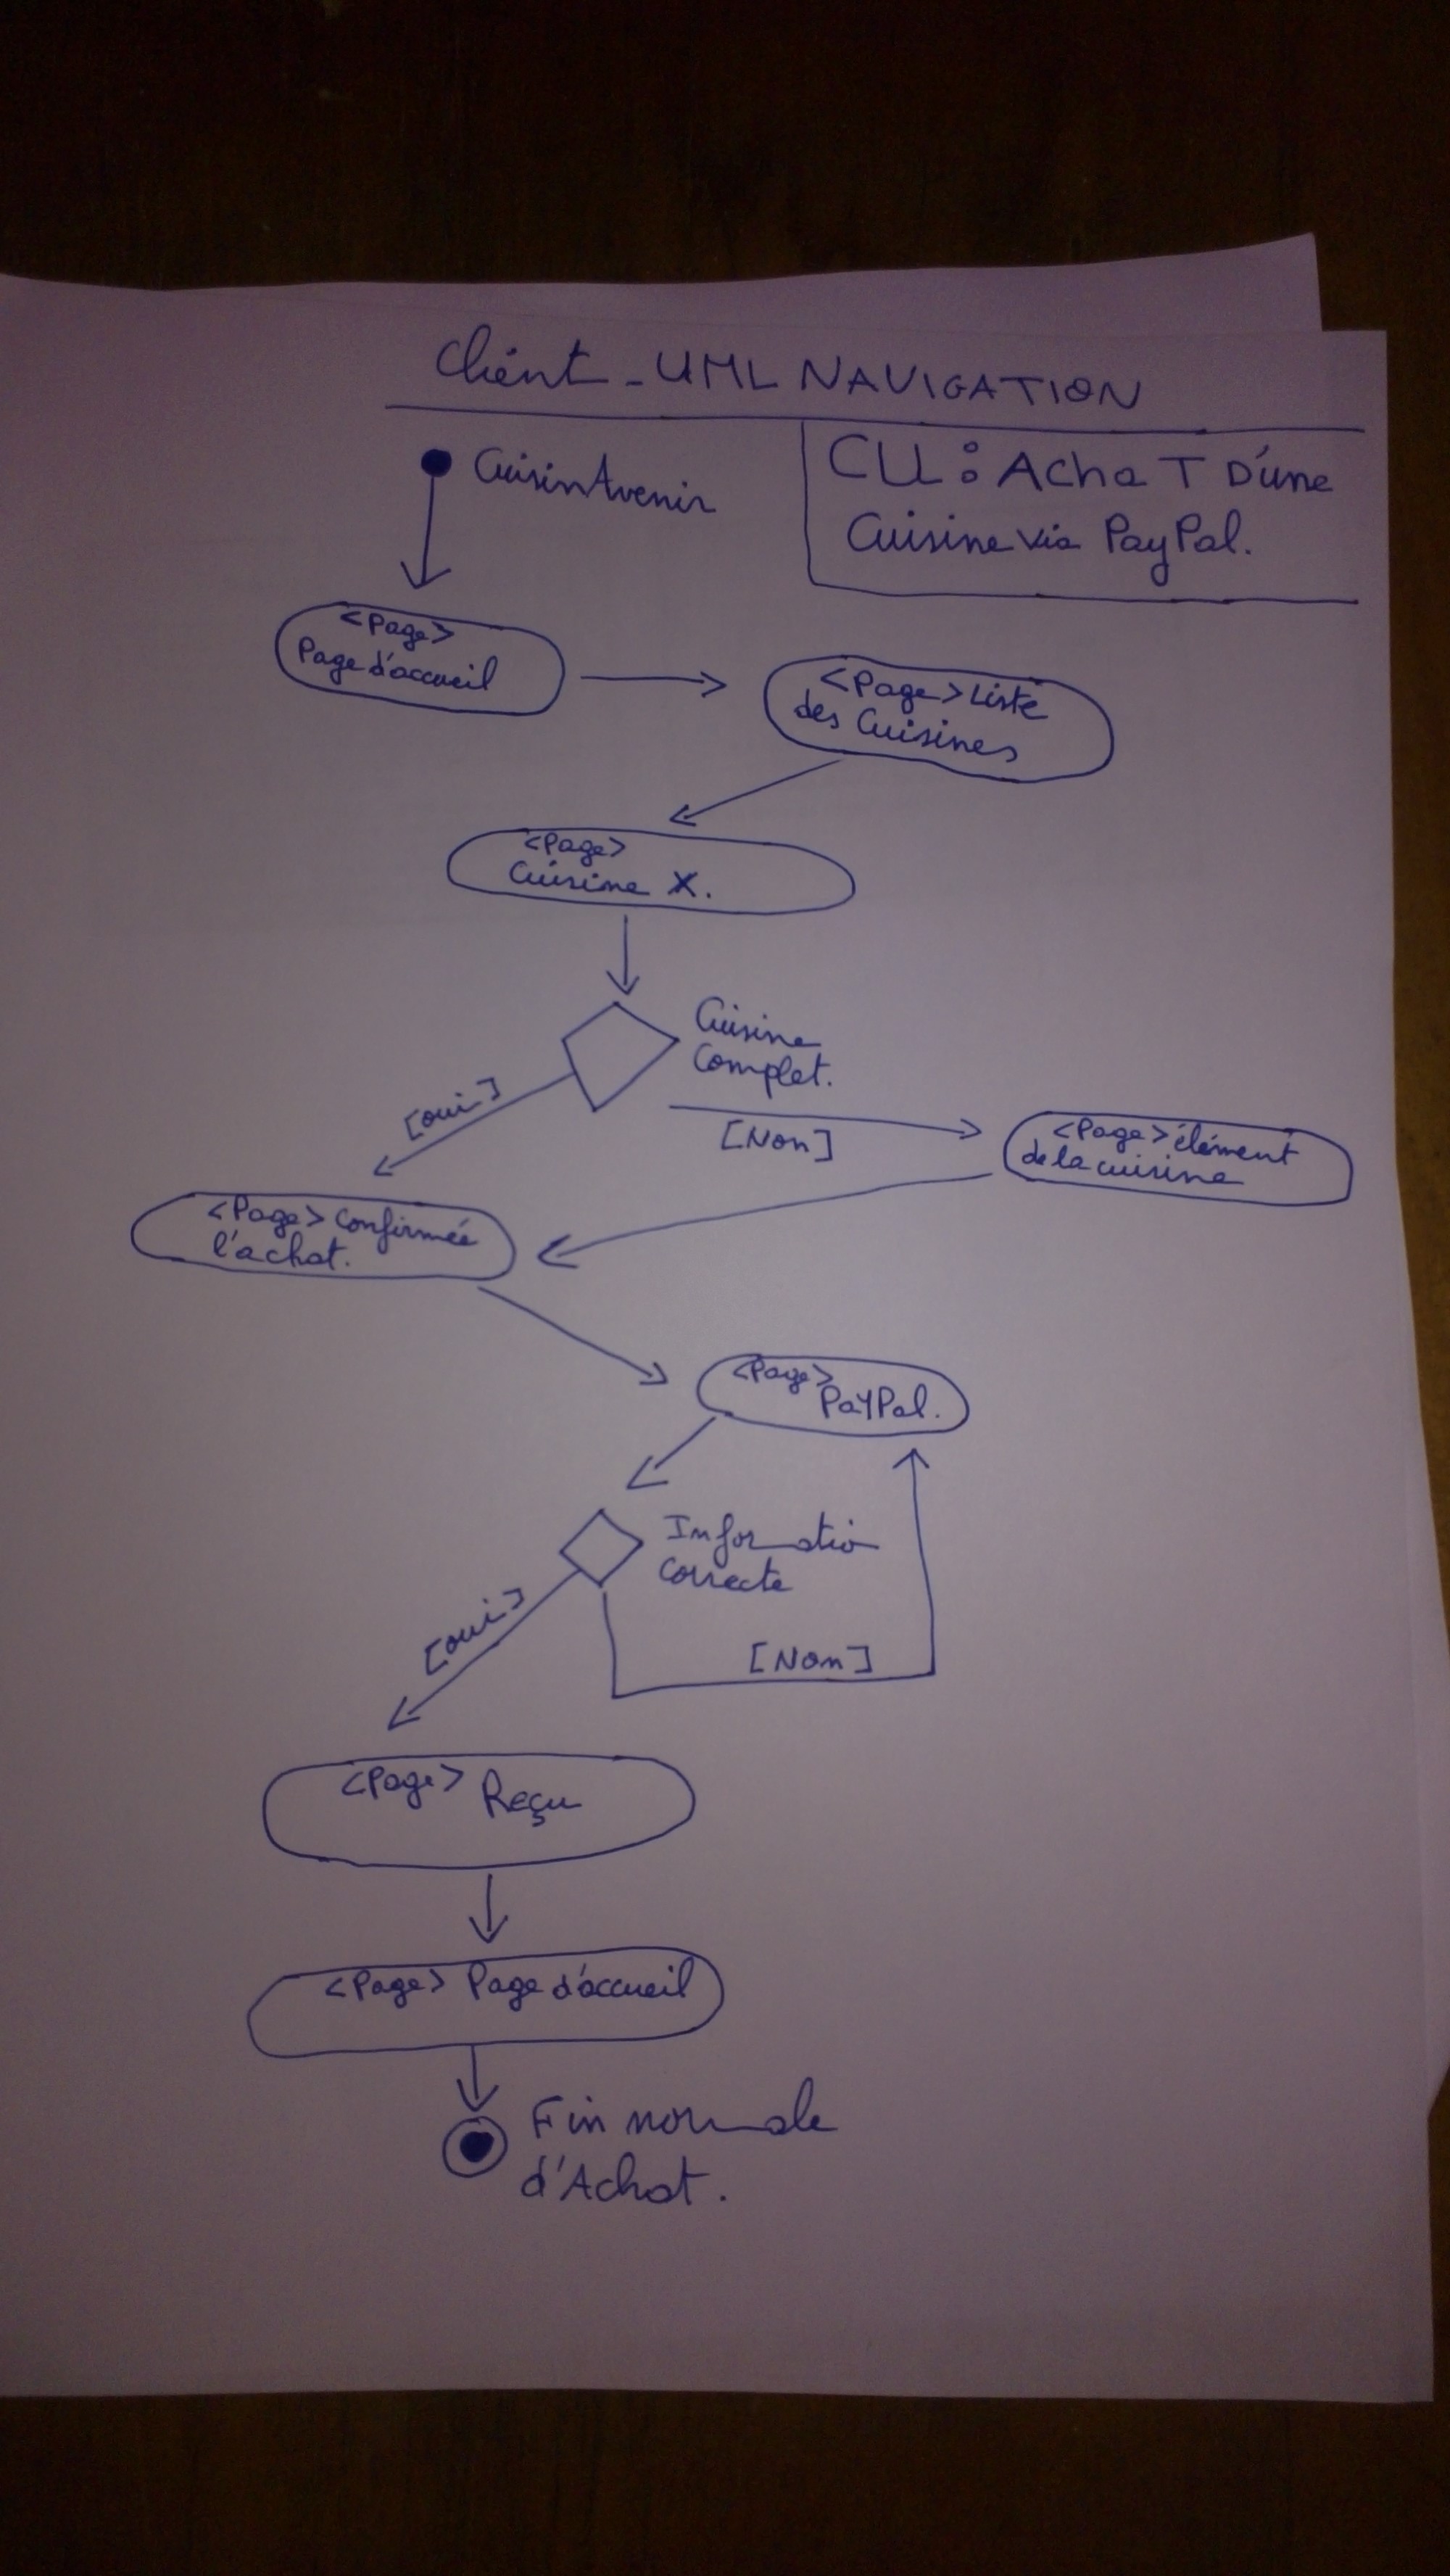 Client - UML NAVIGATION
CuisinAvenir
CU : Achat D'une
Cuisine via PayPal.
<Page>
Page d'accueil
<Page> Liste
des Cuisines
<Page>
Cuisine X.
Cuisine
Complet.
[oui]
[Non]
<Page> élément
de la cuisine
<Page> Confirmée
l'achat.
<Page>
PayPal.
Information
Correcte
[oui]
[Non]
<Page> Reçu
<Page> Page d'accueil
Fin normale
d'Achat.